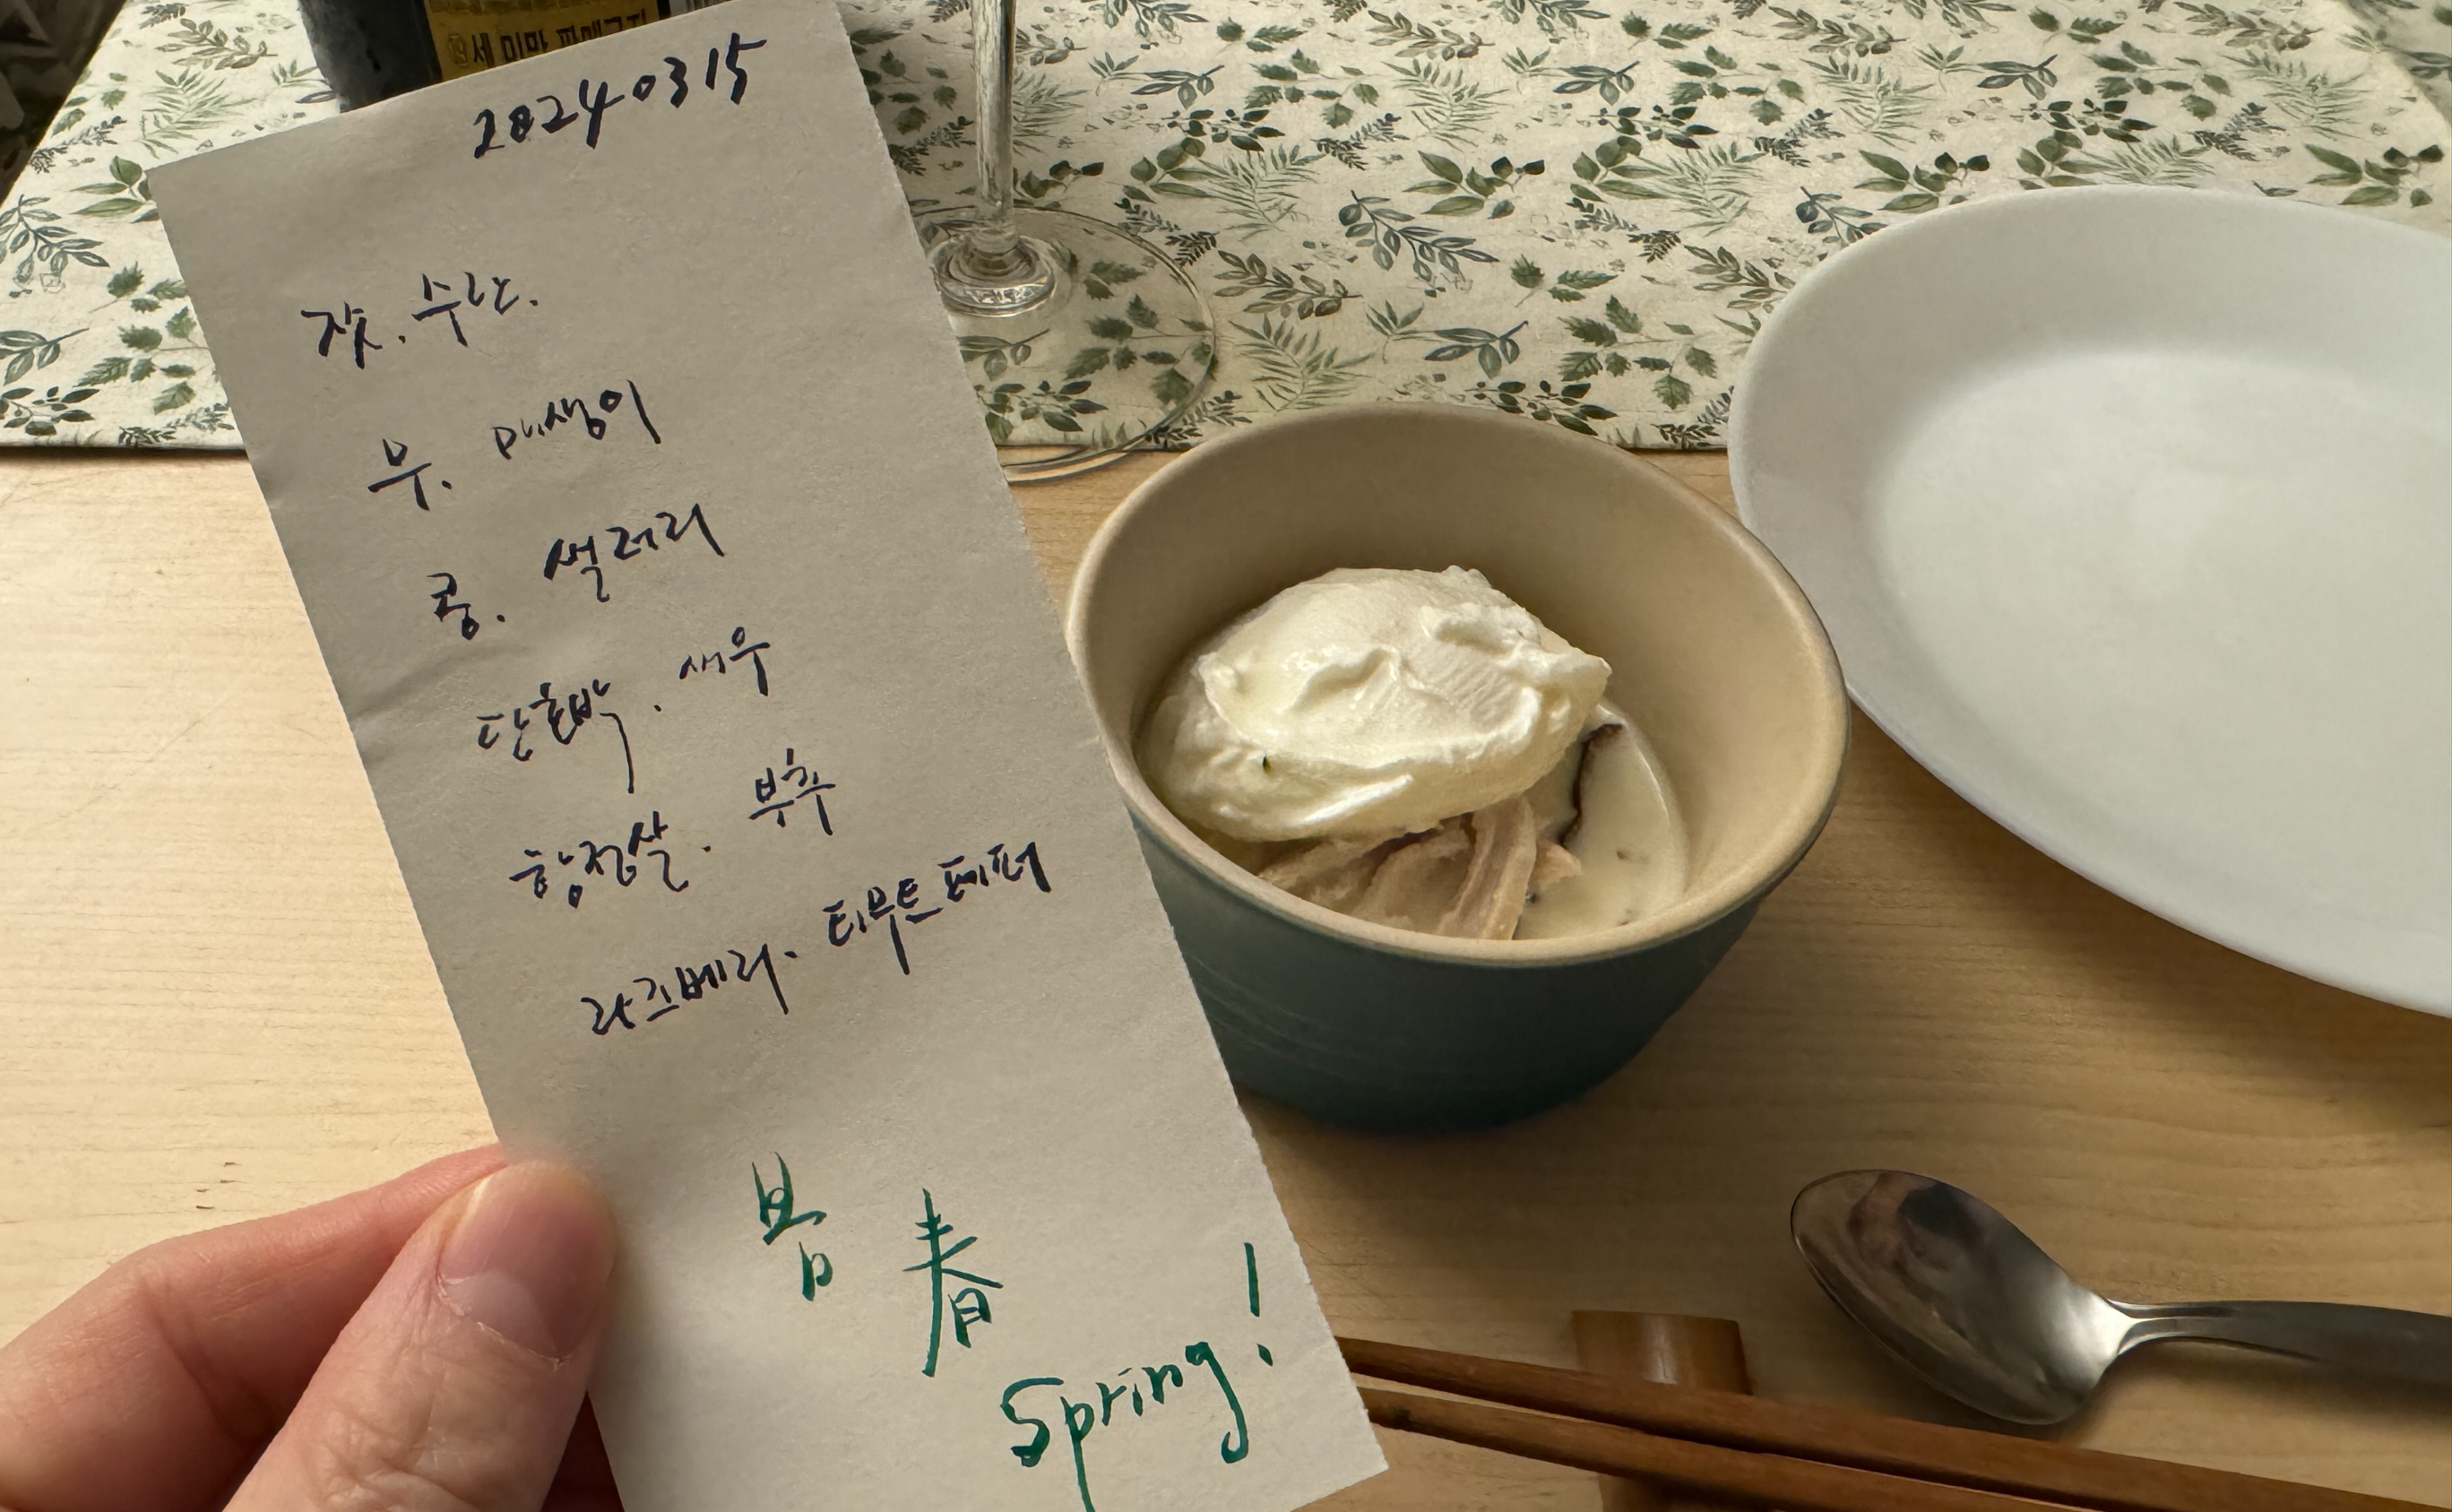 20240315
잣. 수란.
무. 매생이
콩. 샐러리
단호박. 새우
항정살. 부추
라즈베리. 티무트페퍼
봄 春
Spring!